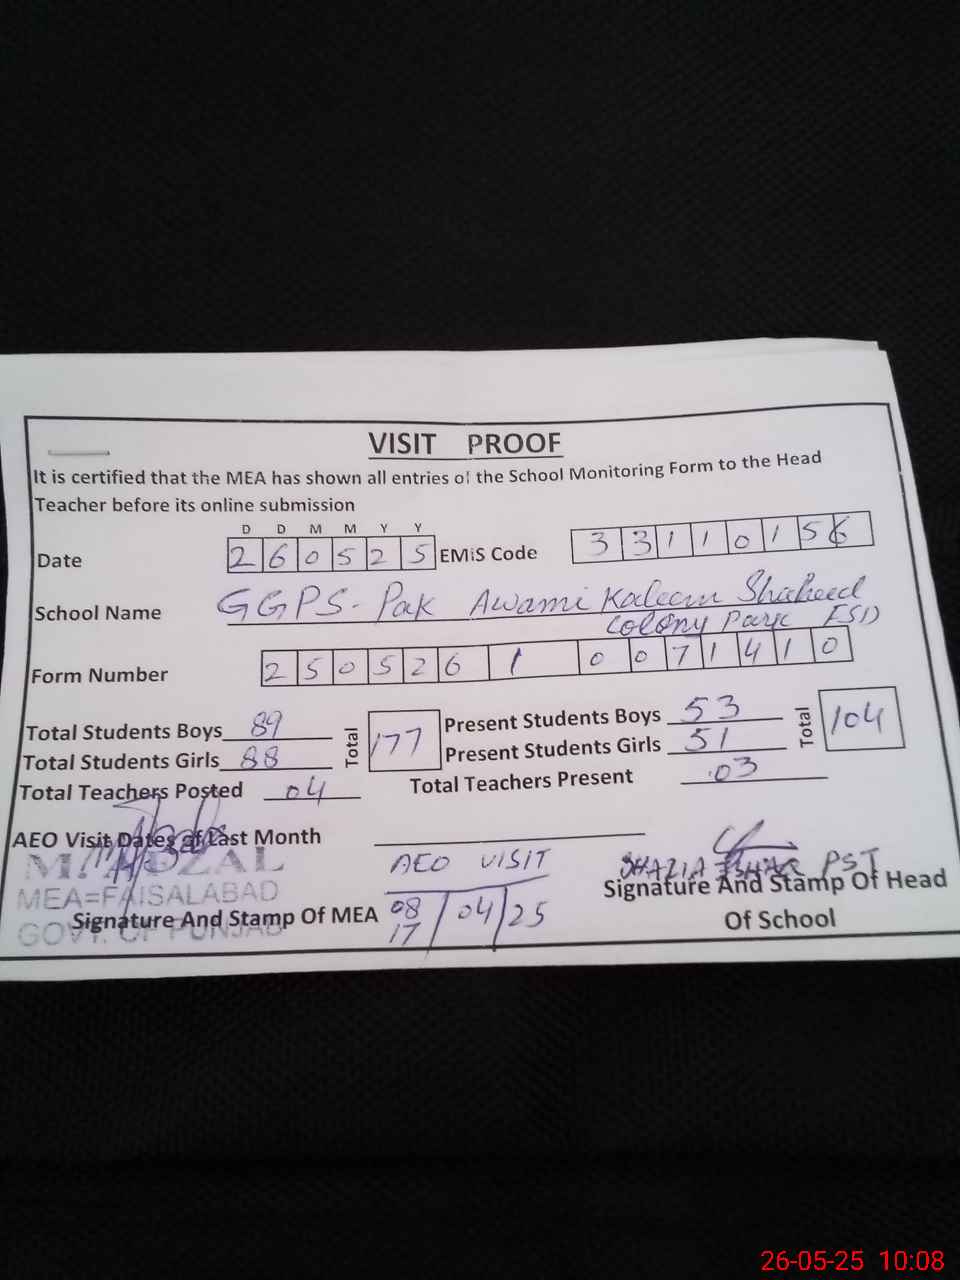 VISIT PROOF
It is certified that the MEA has shown all entries of the School Monitoring Form to the Head
Teacher before its online submission
D D M M Y Y
Date 2 6 0 5 2 5 EMIS Code 3 3 1 1 0 1 5 6
School Name GGPS-Pak Awami Kaleem Shaheed
Colony Park FSD
Form Number 2 5 0 5 2 6 1 0 0 7 1 4 1 0
Total Students Boys 89 Total 177 Present Students Boys 53 Total 104
Total Students Girls 88 Present Students Girls 51
Total Teachers Posted 04 Total Teachers Present 03
AEO Visit Dates of Last Month
AEO VISIT
08/04/25
17
SHAZIA PST
MEA=FAISALABAD
GOVT. OF PUNJAB
Signature And Stamp Of MEA
Signature And Stamp Of Head
Of School
26-05-25 10:08